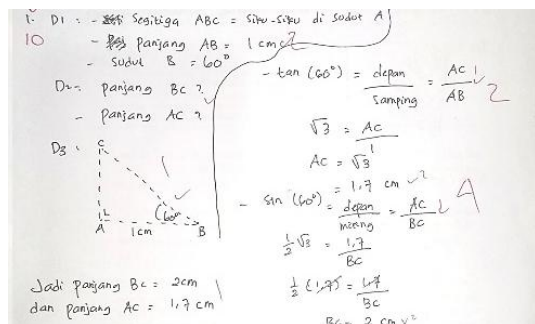 1. D1 : - Segitiga ABC = Siku-siku di sudut A
10
- panjang AB = 1 cm 2
- sudut B = 60°
D2 : panjang BC ?
- panjang AC ?
D3 :
C
1
60°
A
1cm
B
Jadi panjang BC = 2cm
dan panjang AC = 1,7 cm
1
- tan (60°) = depan / samping = AC / AB
1
2
√3 = AC / 1
AC = √3
= 1,7 cm 2
- sin (60°) = depan / miring = AC / BC
4
1/2 √3 = 1,7 / BC
1/2 (1,7) = 1,7 / BC
BC = 2 cm 2